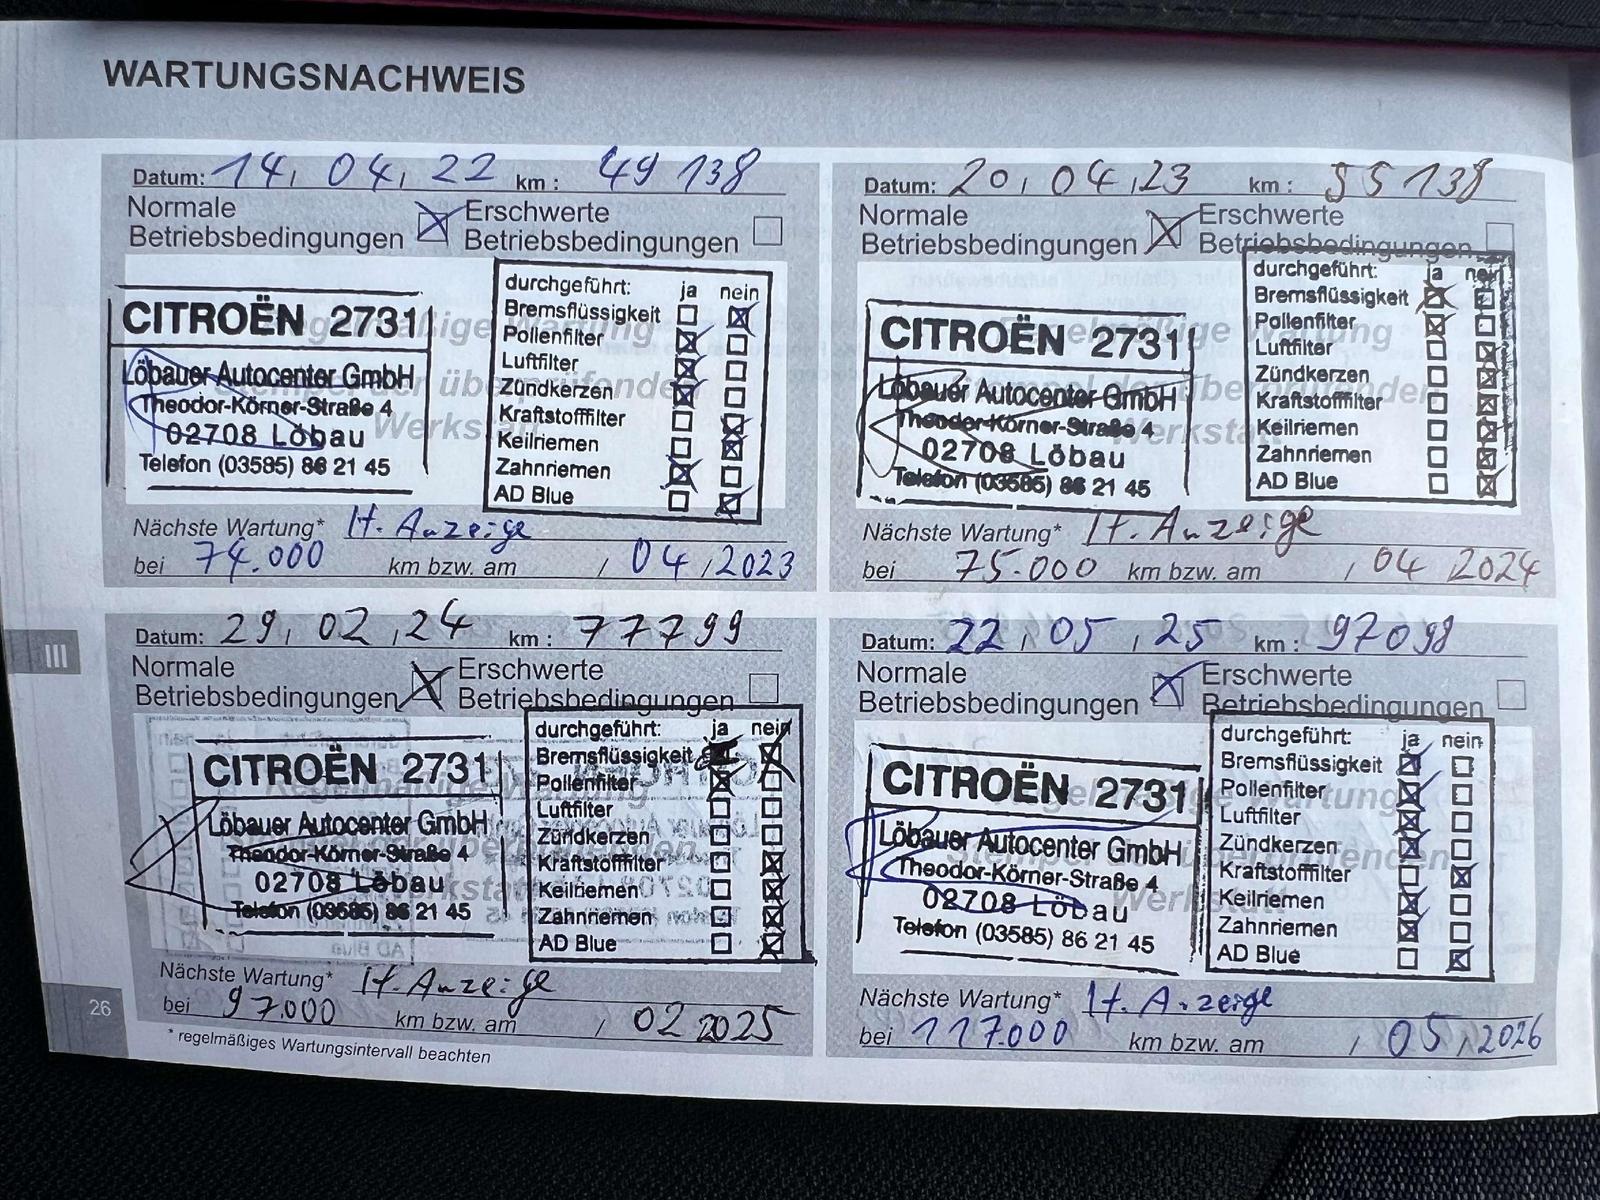 WARTUNGSNACHWEIS
Datum: 14, 04, 22 km : 49 138
Normale Betriebsbedingungen ☒ Erschwerte Betriebsbedingungen ☐
CITROËN 2731
Löbauer Autocenter GmbH
Theodor-Körner-Straße 4
02708 Löbau
Telefon (03585) 86 21 45
durchgeführt: ja nein
Bremsflüssigkeit ☐ ☒
Pollenfilter ☒ ☐
Luftfilter ☒ ☐
Zündkerzen ☒ ☐
Kraftstofffilter ☐ ☒
Keilriemen ☐ ☒
Zahnriemen ☒ ☐
AD Blue ☐ ☒
Nächste Wartung* lt. Anzeige
bei 74.000 km bzw. am / 04 / 2023
Datum: 20, 04, 23 km : 55 138
Normale Betriebsbedingungen ☒ Erschwerte Betriebsbedingungen ☐
CITROËN 2731
Löbauer Autocenter GmbH
Theodor-Körner-Straße 4
02708 Löbau
Telefon (03585) 86 21 45
durchgeführt: ja nein
Bremsflüssigkeit ☒ ☐
Pollenfilter ☒ ☐
Luftfilter ☐ ☒
Zündkerzen ☐ ☒
Kraftstofffilter ☐ ☒
Keilriemen ☐ ☒
Zahnriemen ☐ ☒
AD Blue ☐ ☒
Nächste Wartung* lt. Anzeige
bei 75.000 km bzw. am / 04 2024
III
Datum: 29, 02, 24 km : 77799
Normale Betriebsbedingungen ☒ Erschwerte Betriebsbedingungen ☐
CITROËN 2731
Löbauer Autocenter GmbH
Theodor-Körner-Straße 4
02708 Löbau
Telefon (03585) 86 21 45
durchgeführt: ja nein
Bremsflüssigkeit ☒
Pollenfilter ☒ ☐
Luftfilter ☐ ☐
Zündkerzen ☐ ☐
Kraftstofffilter ☐ ☒
Keilriemen ☐ ☒
Zahnriemen ☐ ☒
AD Blue ☐ ☒
Nächste Wartung* lt. Anzeige
bei 97.000 km bzw. am / 02 2025
* regelmäßiges Wartungsintervall beachten
Datum: 22, 05, 25 km : 97098
Normale Betriebsbedingungen ☒ Erschwerte Betriebsbedingungen ☐
CITROËN 2731
Löbauer Autocenter GmbH
Theodor-Körner-Straße 4
02708 Löbau
Telefon (03585) 86 21 45
durchgeführt: ja nein
Bremsflüssigkeit ☒ ☐
Pollenfilter ☒ ☐
Luftfilter ☒ ☐
Zündkerzen ☒ ☐
Kraftstofffilter ☐ ☒
Keilriemen ☒ ☐
Zahnriemen ☒ ☐
AD Blue ☐ ☒
Nächste Wartung* lt. Anzeige
bei 117.000 km bzw. am / 05, 2026
26